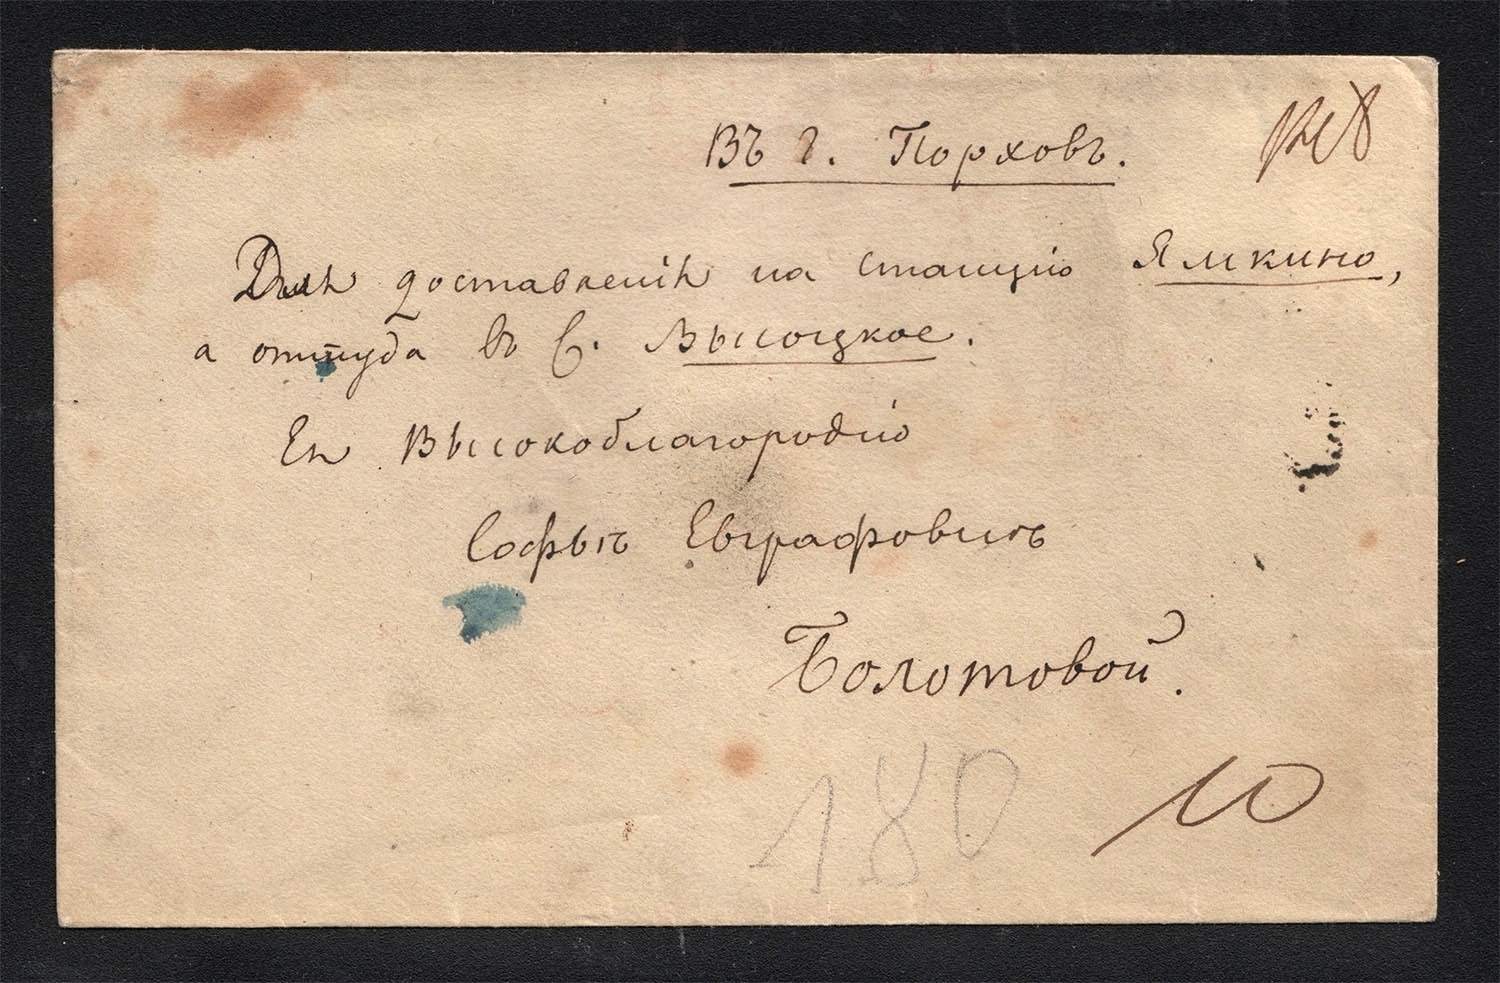 Въ г. Порховъ.
Для доставленія на станцію Ямкино,
а оттуда въ С. Высоцкое.
Ея Высокоблагородію
Софьѣ Евграфовнѣ
Болотовой.
180
10